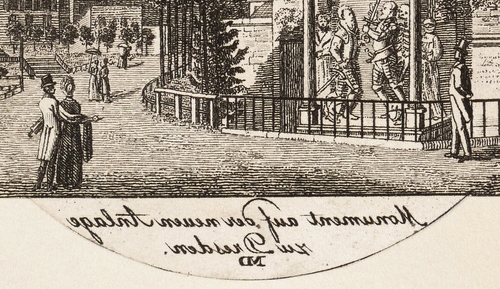 Monument auf der neuen Anlage
zu Dresden.
MD